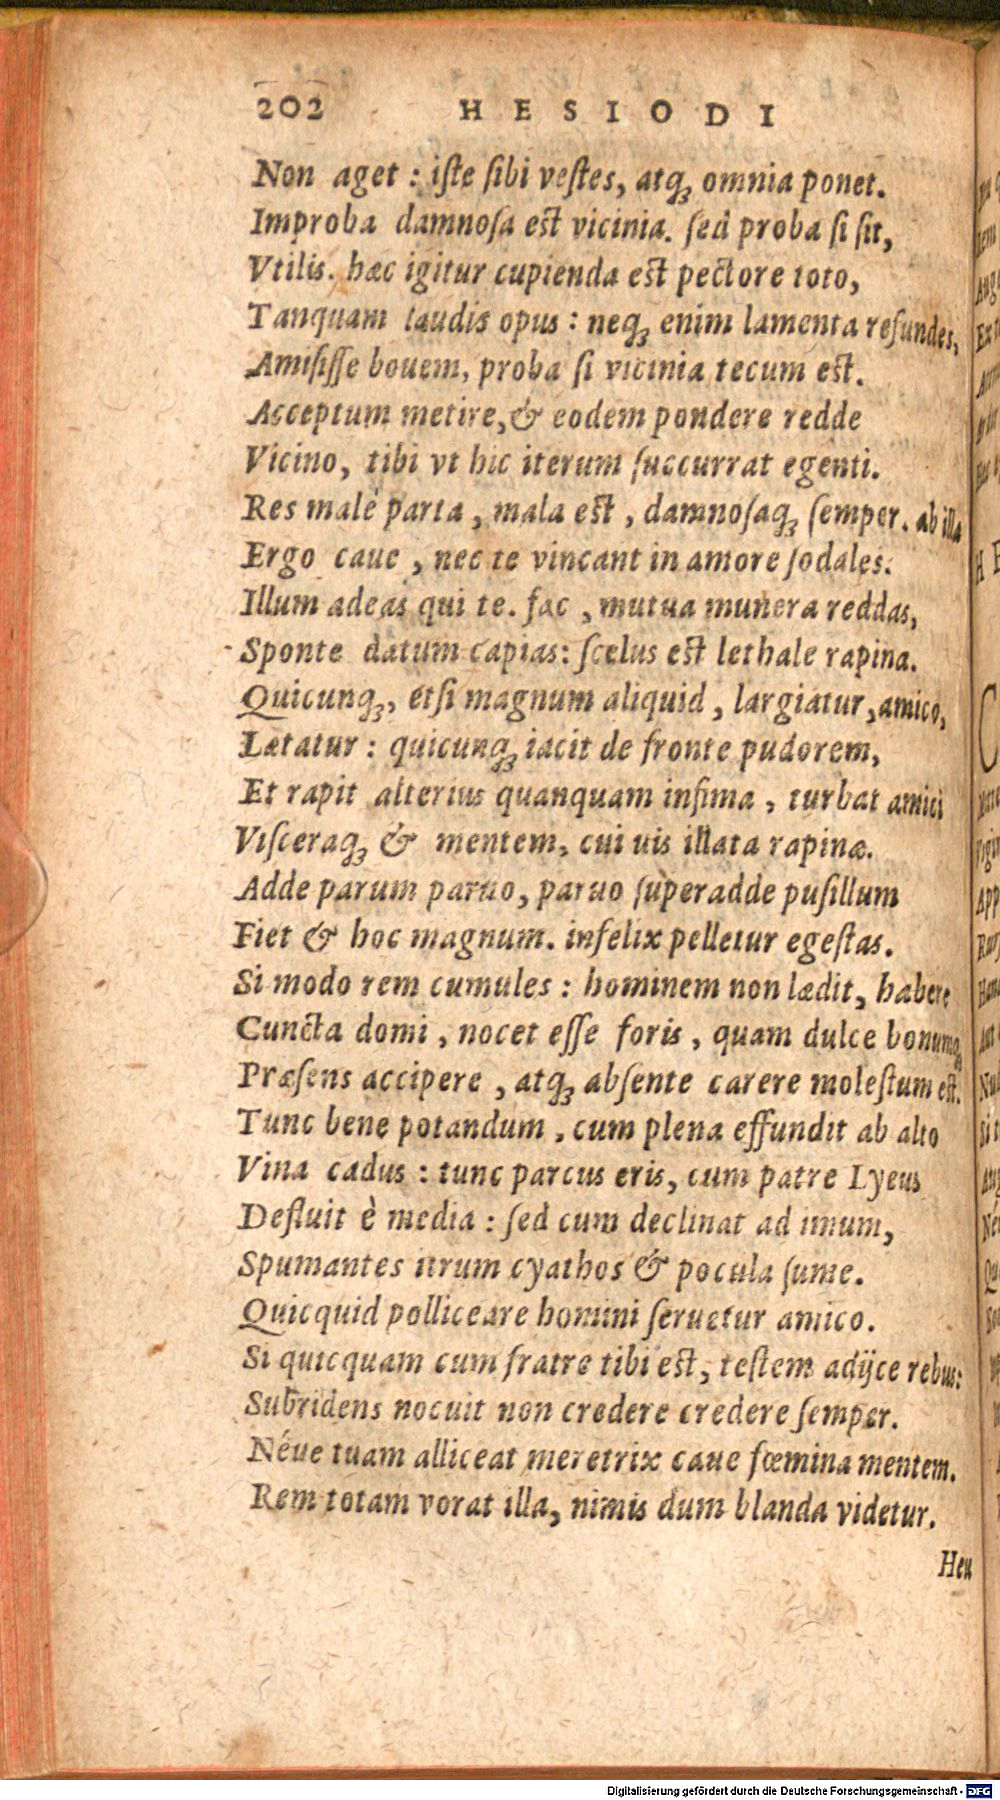 202 HESIODI
Non aget : iſte ſibi veſtes, atqꝫ omnia ponet.
Improba damnoſa eſt vicinia. ſed proba ſi ſit,
Vtilis. hæc igitur cupienda eſt pectore toto,
Tanquam laudis opus : neqꝫ enim lamenta refundes,
Amiſiſſe bouem, proba ſi vicinia tecum eſt.
Acceptum metire, & eodem pondere redde
Vicino, tibi vt hic iterum ſuccurrat egenti.
Res malè parta, mala eſt, damnoſaqꝫ ſemper. ab illa
Ergo caue, nec te vincant in amore ſodales.
Illum adeas qui te. fac, mutua munera reddas,
Sponte datum capias: ſcelus eſt lethale rapina.
Quicunqꝫ, etſi magnum aliquid, largiatur, amico,
Lætatur : quicunqꝫ iacit de fronte pudorem,
Et rapit alterius quanquam infima, turbat amici
Viſceraqꝫ & mentem, cui uis illata rapinæ.
Adde parum paruo, paruo ſuperadde puſillum
Fiet & hoc magnum. infelix pelletur egeſtas.
Si modo rem cumules : hominem non lædit, habere
Cuncta domi, nocet eſſe foris, quam dulce bonumqꝫ
Præſens accipere, atqꝫ abſente carere moleſtum eſt.
Tunc bene potandum, cum plena effundit ab alto
Vina cadus : tunc parcus eris, cum patre Lyeus
Defluit è media : ſed cum declinat ad imum,
Spumantes itrum cyathos & pocula ſume.
Quicquid polliceare homini ſeruetur amico.
Si quicquam cum fratre tibi eſt, teſtem adijce rebus:
Subridens nocuit non credere credere ſemper.
Néue tuam alliceat meretrix caue fœmina mentem.
Rem totam vorat illa, nimis dum blanda videtur.
Heu
Digitalisierung gefördert durch die Deutsche Forschungsgemeinschaft - DFG